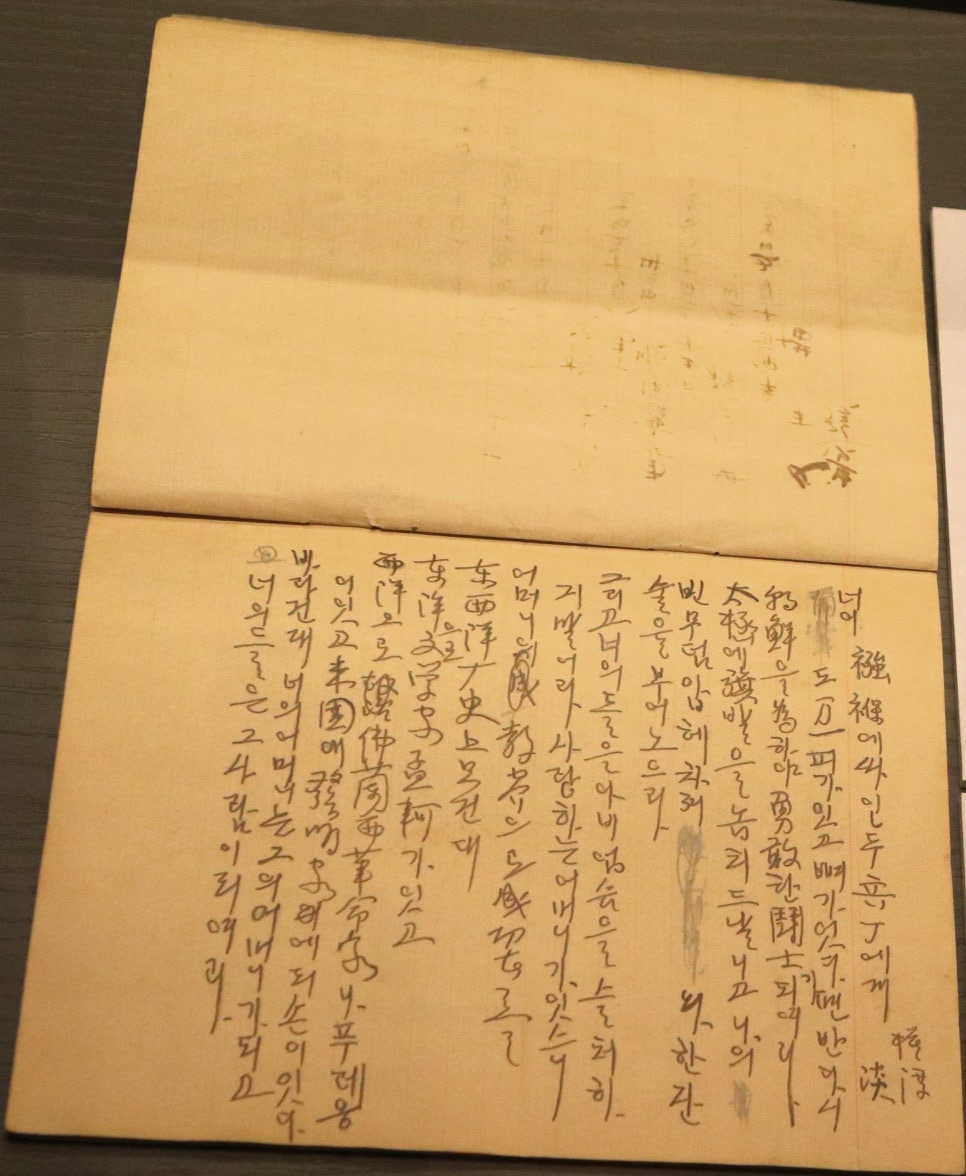 너이 襁褓에 싸인 두 兵丁에게
模淳
淡
도 万一 피가 잇고 뼈가 잇다면 반다시
朝鮮을 為하야 勇敢한 鬪士가 되여라.
太極에 旗발을 놉피 드날니고 나의
빈 무덤 압헤 차져와 한 잔
술을 부어 노으라
그리고 너의들은 아비 업슴을 슬퍼하
지 말어라 사랑하는 어머니가 잇스니
어머니의 敎养으로 成功者를
东西洋 史上 보건대
东洋으로 文学家 孟軻가 잇고
西洋으로 佛蘭西 革命家 나푸레옹
이 잇고 米国에 發明家 에듸손이 잇다.
바라건대 너의 어머니는 그의 어머니가 되고
너의들은 그 사람이 되여라.